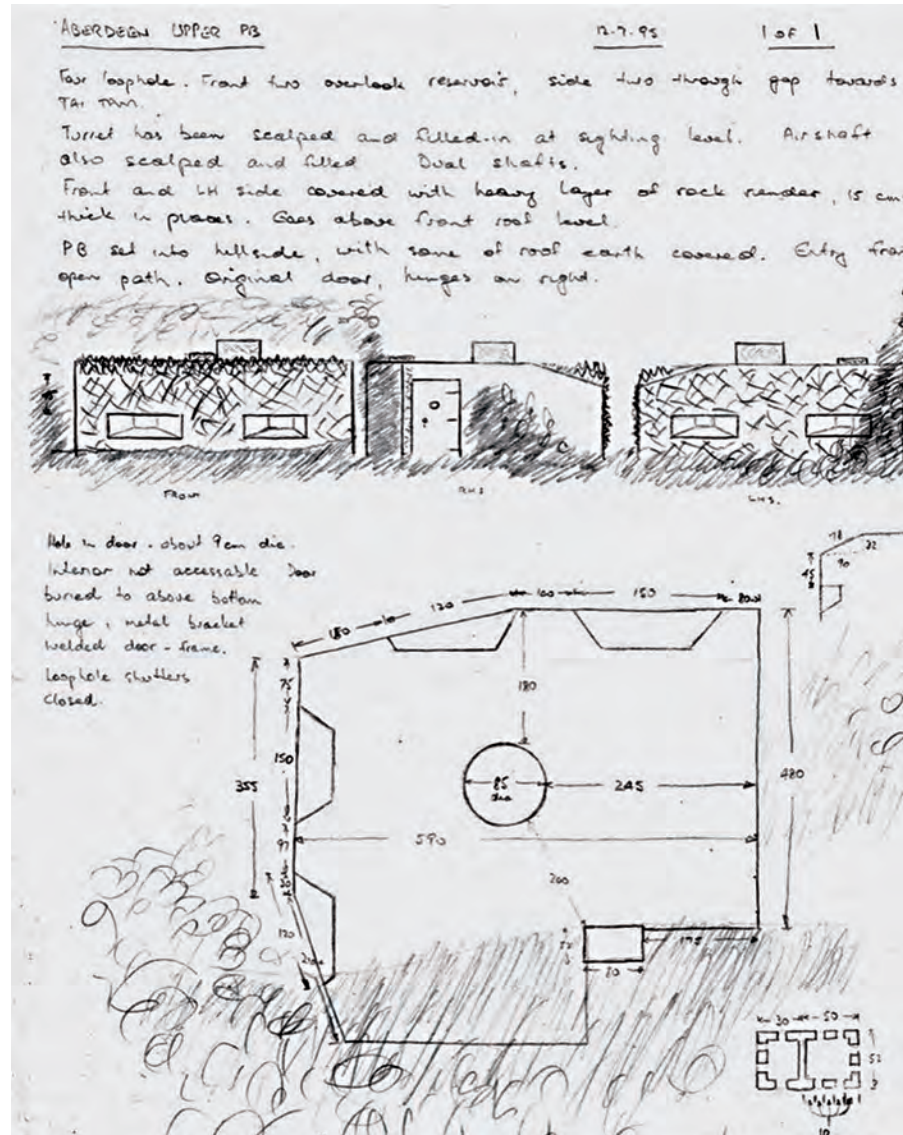 ABERDEEN UPPER PB 12-7-95 1 OF 1
Four loophole. Front two overlook reservoir, side two through gap towards
TAI TAM.
Turret has been scalped and filled-in at sighting level. Airshaft
also scalped and filled Dual shafts.
Front and LH side covered with heavy layer of rock render, 15 cm
thick in places. Goes above front roof level.
PB set into hillside, with some of roof earth covered. Entry from
open path. Original door, hinges on right.
FRONT R.H.S. L.H.S.
Hole in door - about 9cm dia.
Interior not accessable Door
buried to above bottom
hinge, metal bracket
welded door-frame.
Loophole shutters
closed.
78
22
45
180 120 100 150 80
75
180
150
355
85
dia
245
480
97
590
200
120
175
80
30 50
52
10